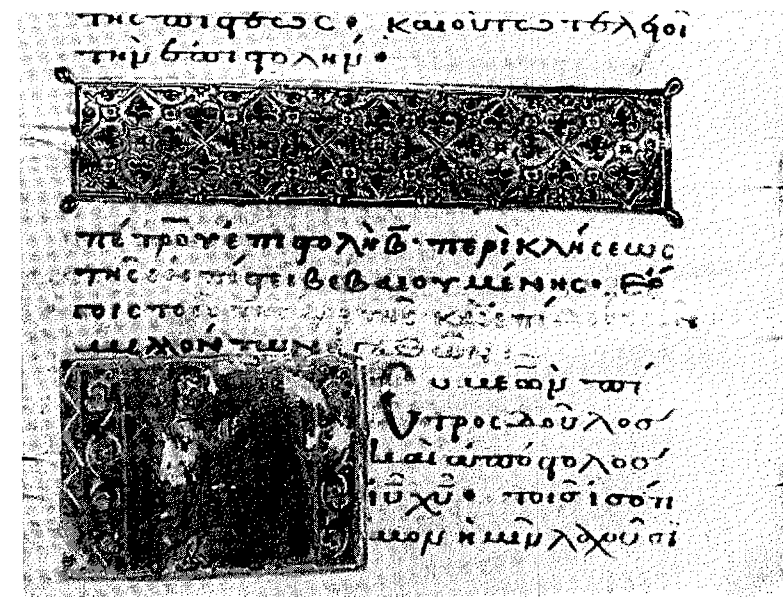 της πίστεως· και οὕτω τελειοῖ
τὴν ἐπιστολήν·
πέτρου ἐπιστολὴ β̅· περὶ κλήσεως
τῆς ἐν πίστει βεβαιουμένης· ἐν
τοῖς
μελλόντων ἀγαθῶν:
Συμεὼν πέ
τρος δοῦλος
καὶ ἀπόστολος
ἰῦ χῦ· τοῖς ἰσότι
μον ἡμῖν λαχοῦσι